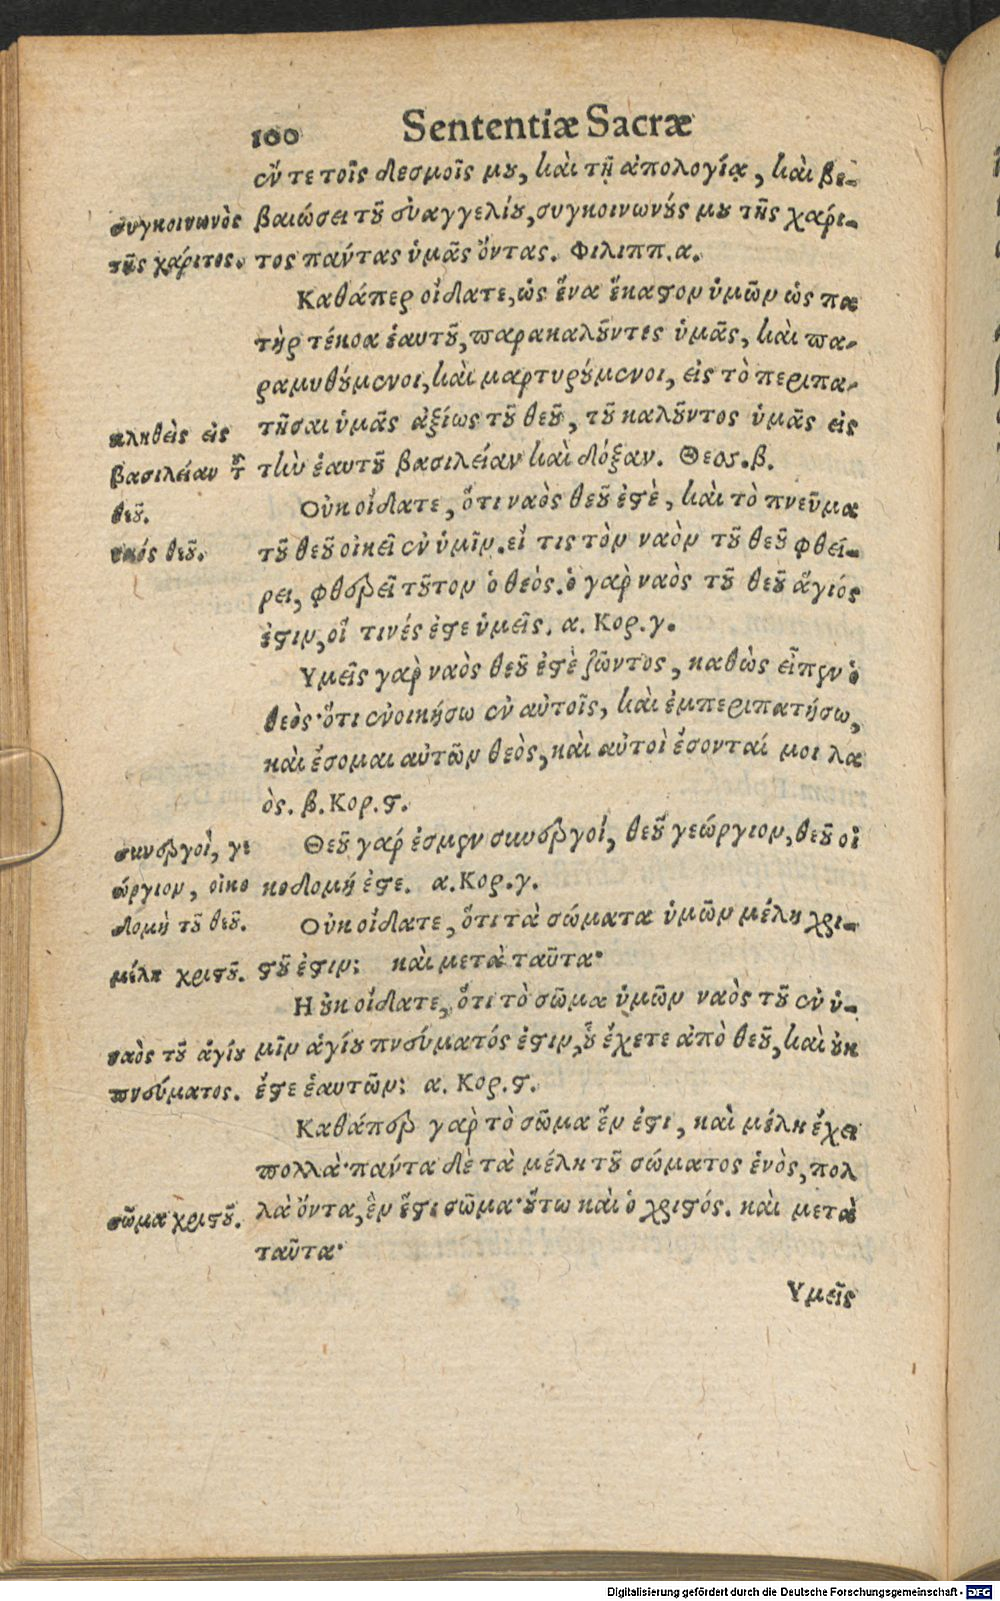 100 Sententiæ Sacræ
ἔν τε τοῖς δεσμοῖς μου, καὶ τῇ ἀπολογίᾳ, καὶ βε-
συγκοινωνὸς βαιώσει τοῦ εὐαγγελίου, συγκοινωνούς μου τῆς χάρι-
τῆς χάριτος. τος πάντας ὑμᾶς ὄντας. Φιλιππ.α.
Καθάπερ οἴδατε, ὡς ἕνα ἕκαστον ὑμῶν ὡς πα
τὴρ τέκνα ἑαυτοῦ, παρακαλοῦντες ὑμᾶς, καὶ πα-
ραμυθούμενοι, καὶ μαρτυρούμενοι, εἰς τὸ περιπα-
κληθεὶς εἰς τῆσαι ὑμᾶς ἀξίως τοῦ θεοῦ, τοῦ καλοῦντος ὑμᾶς εἰς
βασιλείαν τ τὴν ἑαυτοῦ βασιλείαν καὶ δόξαν. Θεσ.β.
θεοῦ. Οὐκ οἴδατε, ὅτι ναὸς θεοῦ ἐστὲ, καὶ τὸ πνεῦμα
ναός θεοῦ. τοῦ θεοῦ οἰκεῖ ἐν ὑμῖν. εἴ τις τὸν ναὸν τοῦ θεοῦ φθεί-
ρει, φθερεῖ τοῦτον ὁ θεός. ὁ γὰρ ναὸς τοῦ θεοῦ ἅγιός
ἐστιν, οἵ τινές ἐστε ὑμεῖς. α. Κορ.γ.
Υμεῖς γὰρ ναὸς θεοῦ ἐστὲ ζῶντος, καθὼς εἶπεν ὁ
θεὸς· ὅτι ἐνοικήσω ἐν αὐτοῖς, καὶ ἐμπεριπατήσω,
καὶ ἔσομαι αὐτῶν θεὸς, καὶ αὐτοὶ ἔσονταί μοι λα
ὸς. β. Κορ.ϛ.
συνεργοὶ, γε Θεοῦ γάρ ἐσμεν συνεργοί, θεοῦ γεώργιον, θεοῦ οἰ
ώργιον, οἰκο κοδομή ἐστε. α.Κορ.γ.
δομὴ τοῦ θεοῦ. Οὐκ οἴδατε, ὅτι τὰ σώματα ὑμῶν μέλη χρι-
μέλη χριστοῦ. στοῦ ἐστιν; καὶ μετὰ ταῦτα·
Η οὐκ οἴδατε, ὅτι τὸ σῶμα ὑμῶν ναὸς τοῦ ἐν ὑ-
ναὸς τοῦ ἁγίου μῖν ἁγίου πνεύματός ἐστιν, οὗ ἔχετε ἀπὸ θεοῦ, καὶ οὐκ
πνεύματος. ἐστε ἑαυτῶν; α. Κορ.ϛ.
Καθάπερ γὰρ τὸ σῶμα ἕν ἐστι, καὶ μέλη ἔχει
πολλὰ· πάντα δὲ τὰ μέλη τοῦ σώματος ἑνὸς, πολ
σῶμα χριστοῦ. λὰ ὄντα, ἓν ἐστι σῶμα· οὕτω καὶ ὁ χριστός. καὶ μετὰ
ταῦτα·
Υμεῖς
Digitalisierung gefördert durch die Deutsche Forschungsgemeinschaft - DFG